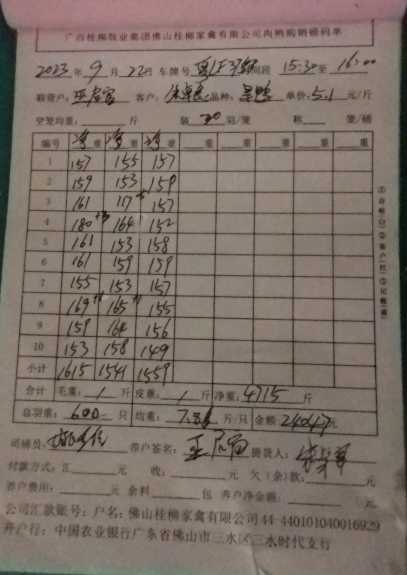 广西桂柳牧业集团佛山桂柳家禽有限公司肉鸭购销磅码单
2023年9月22日 车牌号 时间段 15:30至16:00
客户: 品种: 单价:5.1元/斤
空笼均重: 斤 装 20 只/笼 称 笼/磅
编号 净重 净重 净重 重 重 重 重
1 157 155 157
2 159 153 159
3 161 117 157
4 180 164 152
5 161 153 158
6 161 159 159
7 155 153 157
8 169 165 155
9 159 164 156
10 153 158 149
小计 1615 1541 1559
合计 毛重: / 斤 皮重: / 斤 净重: 4715 斤
总羽重: 600 只 均重: 7.86 斤/只 金额: 24047元
司磅员: 养户签名: 提货人:
付款方式:汇 元 收: 元 欠(余)款: 元
养户费用: 元 余料 包 养户净金额: 元
公司汇款账号:户名:佛山桂柳家禽有限公司44-440101040016929
开户行:中国农业银行广东省佛山市三水区三水时代支行